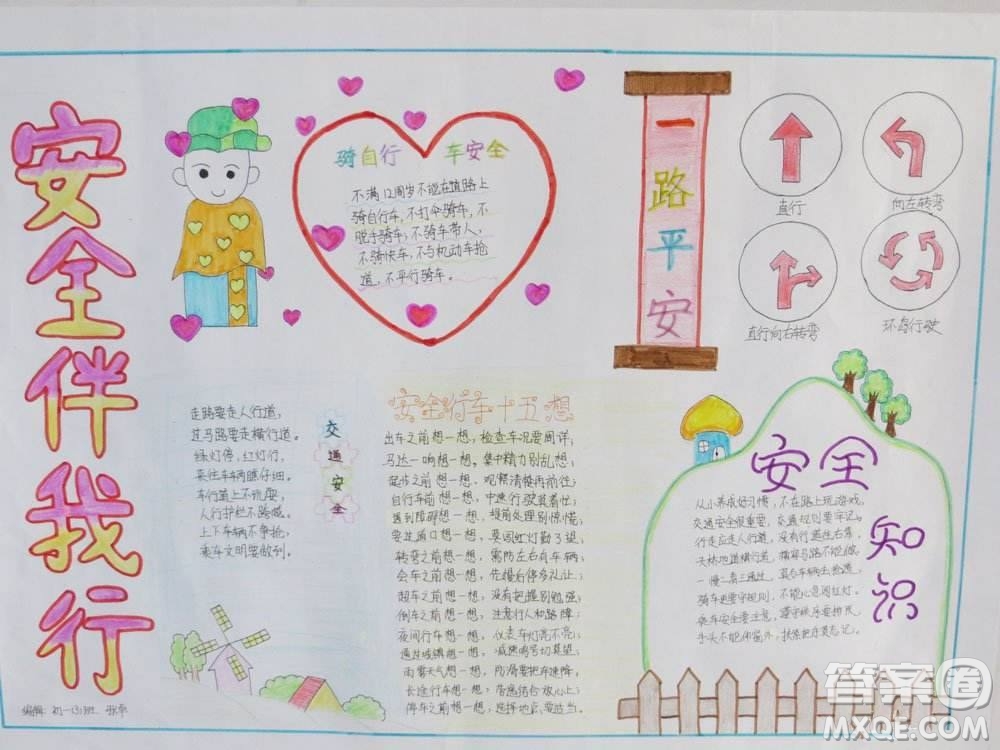 安全伴我行
骑自行车安全
不满12周岁不能在道路上
骑自行车,不打伞骑车,不
脱手骑车,不骑车带人,
不骑快车,不与机动车抢
道,不平行骑车。
一路平安
直行
向左转弯
直行向右转弯
环岛行驶
走路要走人行道,
过马路要走横行道。
绿灯停,红灯行,
来往车车辆瞧仔细。
车行道上不玩耍,
人行护栏不跨越。
上下车辆不争抢,
乘车文明要做到。
交通安全
安全行车十五想
出车之前想一想,检查车况要周详,
马达一响想一想。集中精力别乱想,
起步之前想一想,
自行车前想一想,
遇到障碍想一想,提前处理别惊慌;
转弯之前想一想,需防左右有车辆,
会车之前想一想,先慢后停多礼让;
超车之前想一想,没有把握别勉强;
倒车之前想一想,注意行人和路障;
夜间行车想一想,仪表车灯亮不亮;
通过城镇想一想,减速鸣号切莫忘;
雨雾天气想一想,防滑要把车速降;
长途行车想一想,劳逸结合放心上,
停车之前想一想,选择地点要妥当。
安全知识
从小养成好习惯,不在路上玩游戏,
交通安全很重要,交通规则要牢记,
行走应走人行道,没有行道往右靠,
天桥地道横行道,横穿马路不能做。
一慢二看三通过,莫与车辆去抢道。
骑车更要守规则,不能心急闯红灯。
乘车安全要注意,遵守秩序要排队
手头不能伸窗外,扶紧把手莫忘记。
编辑:初一(3)班
答案圈
MXQE.COM